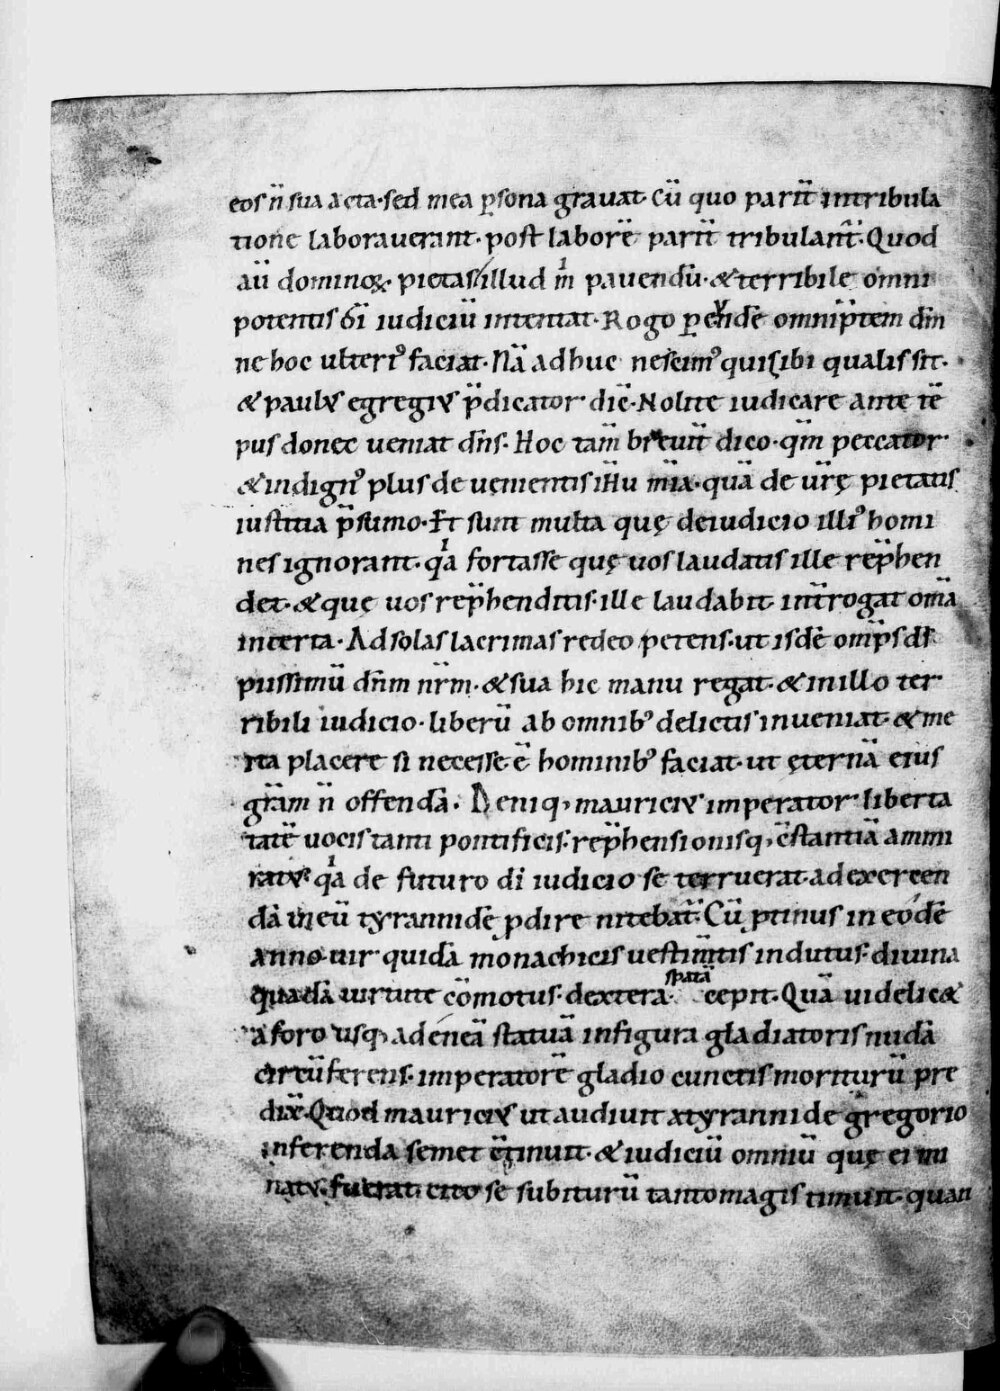 eos n̄ sua acta·sed mea ꝑsona grauat· Cū quo parit̄ intribula
tione laborauerant· post laborē parit̄ tribulant᷑· Quod
aū dominoꝝ pietas illud m̍ pauendū· & terribile omni
potentis dī iudiciū intentat· Rogo ꝑ eundē omnip̄tem dn̄m
ne hoc ulteriꝰ faciat· Nā adhuc nescimꝰ quisibi qualis sit·
& paulus egregius p̄dicator dic̄· Nolite iudicare ante tē
pus donec ueniat dn̄s· Hoc tam̄ breuit̄ dico· qm̄ peccator
& indignꝰ plus de uenientis ih̄u mīa· quā de ur̄ę pietatis
iustitia p̄sumo· Et sunt multa quę deiudicio illiꝰ homi
nes ignorant· qa̍ fortasse quę uos laudatis ille rep̄hen
det· & quę uos rep̄henditis· ille laudabit· int̄rogat om̄a
incerta· Ad solas lacrimas redeo petens· ut isdē omp̄s ds̄
piissimū dn̄m nr̄m· & sua hic manu regat· & inillo ter
ribili iudicio· liberū ab omnibꝰ delictis inueniat· & me
ita placere si necesse ē hominibꝰ faciat· ut ęternā eius
gr̄am n̄ offendā· Deniq; mauricius imperator liberta
tatē uocis tanti pontificis· rep̄hensionisq; c̄stantiā ammi
ratus· qa̍ de futuro dī iudicio se terruerat· ad exercen
dā in eū tyrannidē ꝓdire nitebat᷑· Cū ꝓtinus in eodē
anno uir quidā monachicis uestim̄tis indutus· diuina
quadā uirtute cōmotus· dextera spatā cepit· Quā uidelic&
a foro usq; ad eneā statuā infigura gladiatoris nudā
circūferens· imperatorē gladio cunctis moriturū pre
dix̄· Quod mauricius ut audiuit a tyrannide gregorio
inferenda semet c̄tinuit· & iudiciū omniū quę ei mi
natus fuerat· cito se subiturū tantomagis timuit· quan